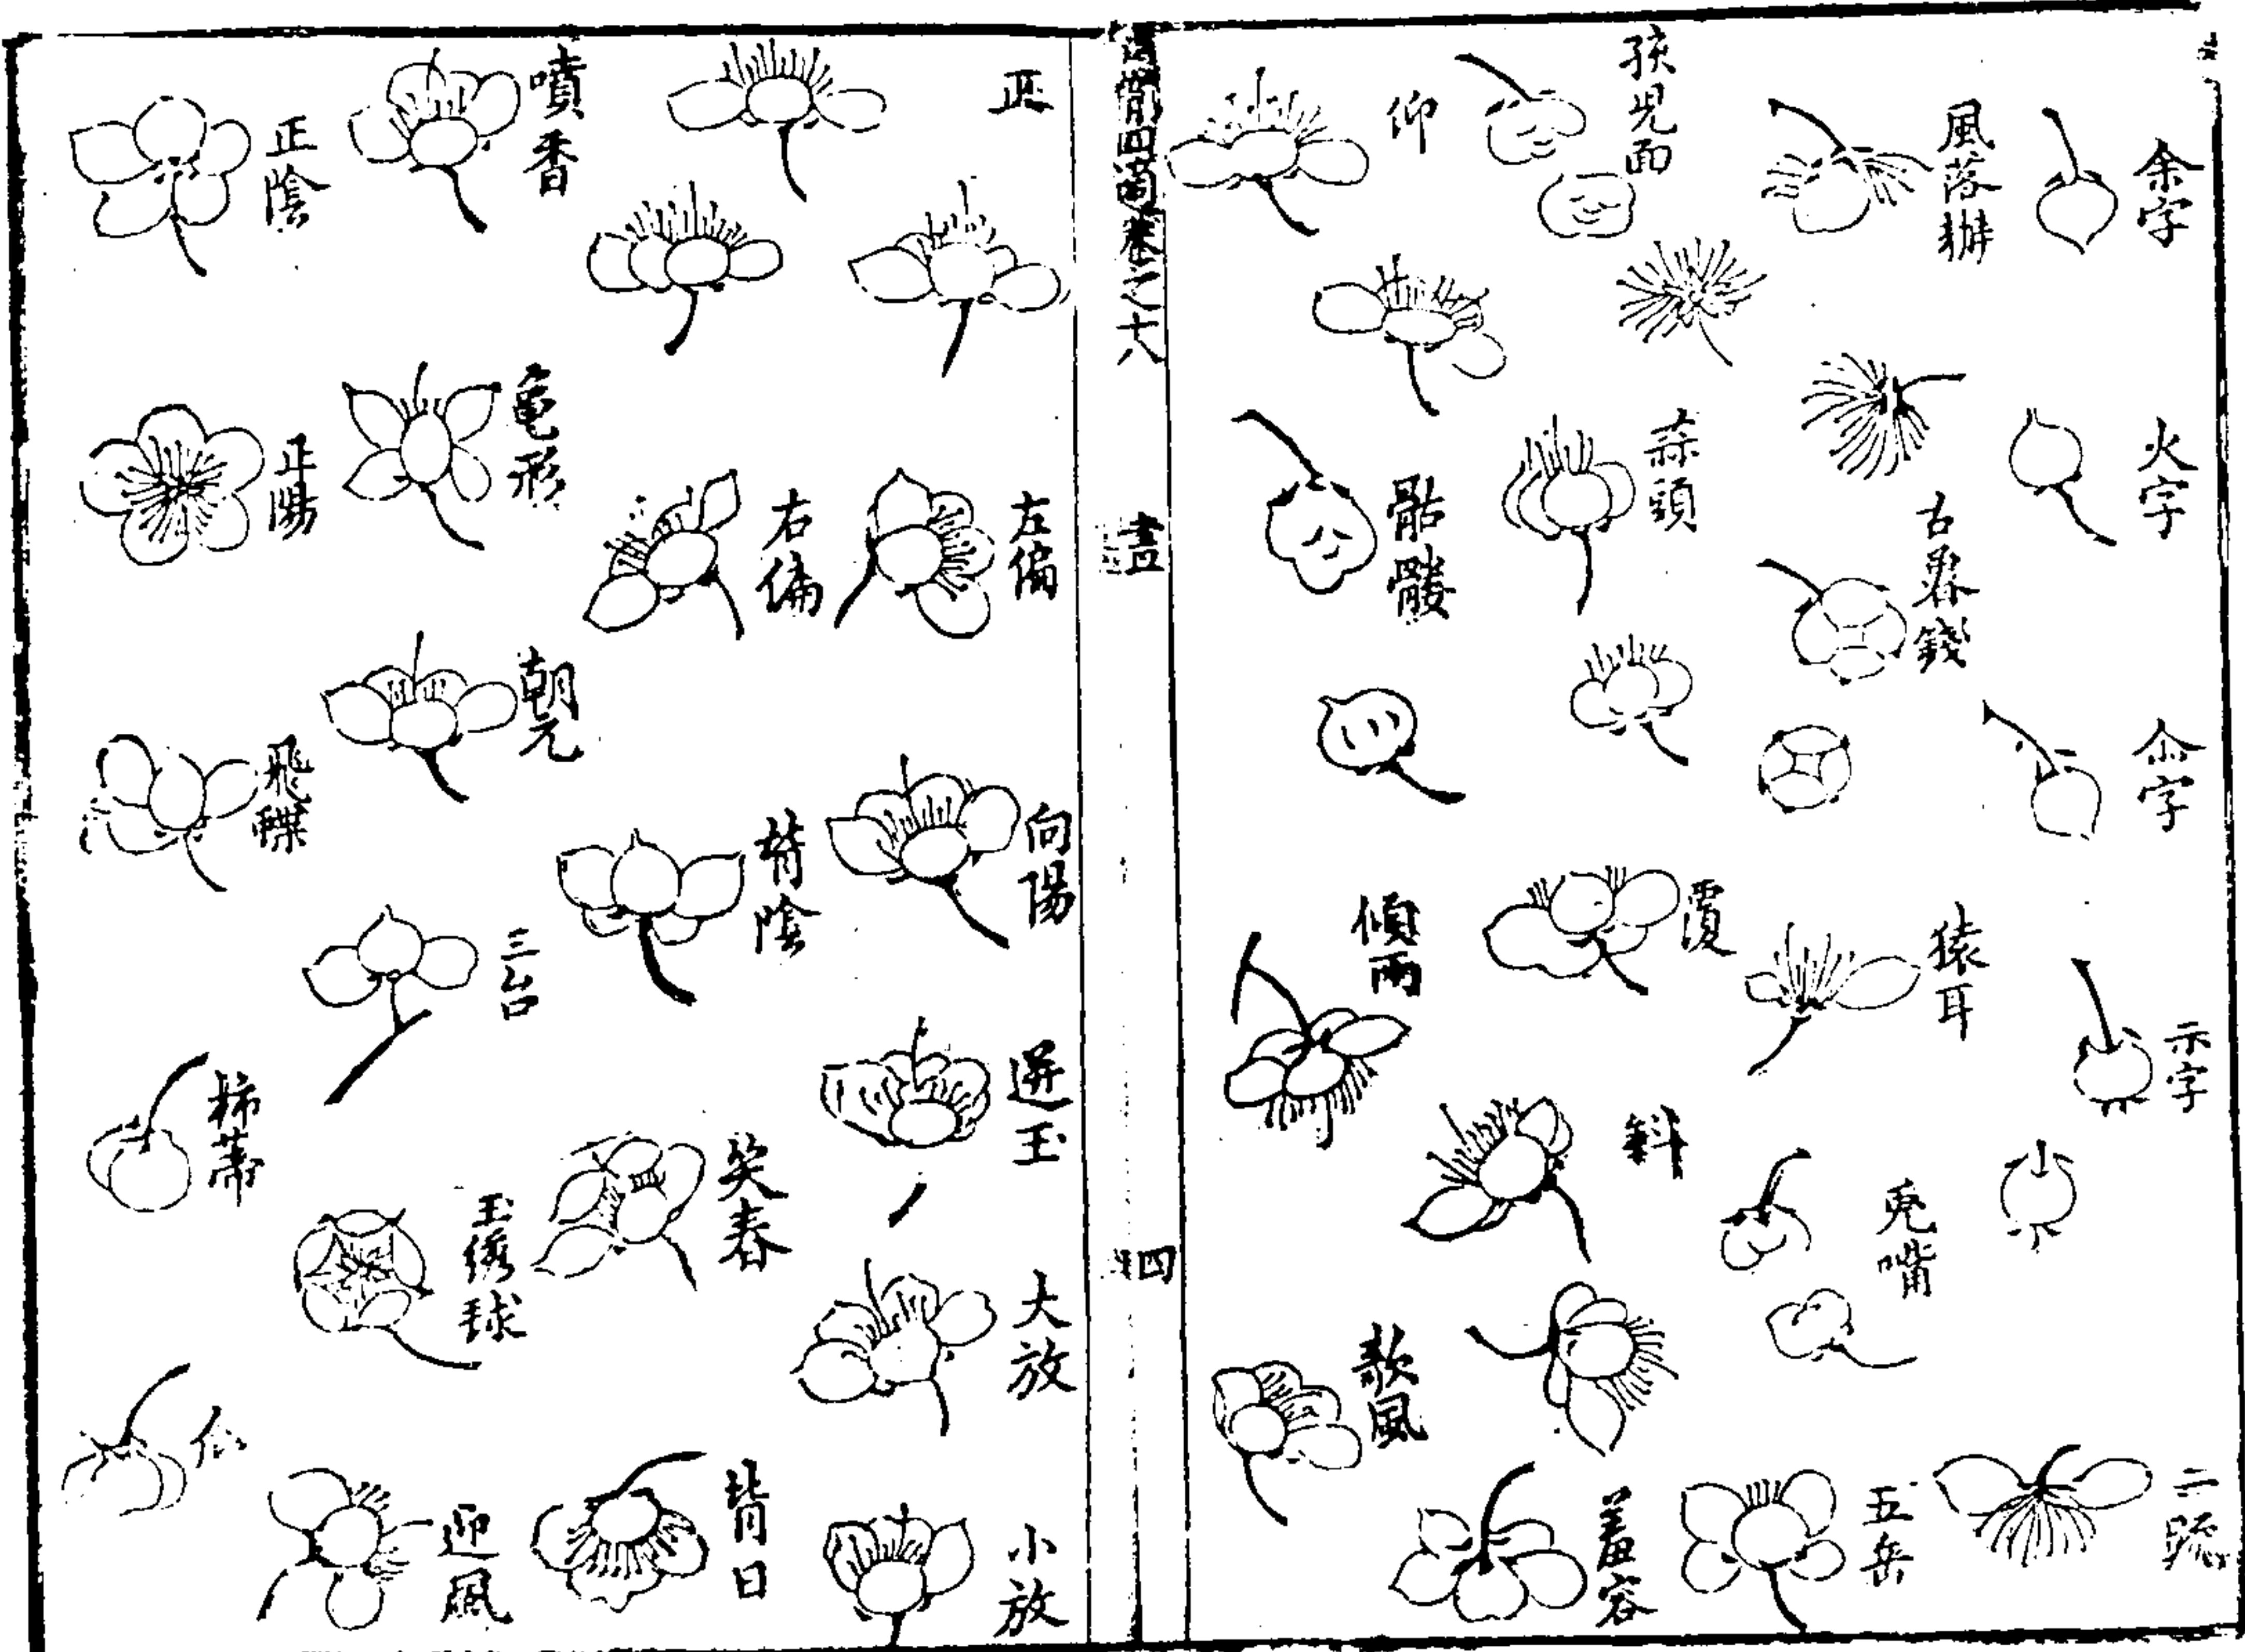 余字
火字
尒字
示字
二疏
風落瓣
古老錢
猿耳
兎嘴
五岳
孩児面
蒜頭
覆
斜
羞容
仰
骷髏
傾雨
欹風
卷之十八
畫
四
正
左偏
向陽
迸玉
大放
小放
右偏
背陰
笑春
背日
噴香
亀形
朝元
三台
玉綉球
迎風
正陰
正陽
飛蝶
柿蒂